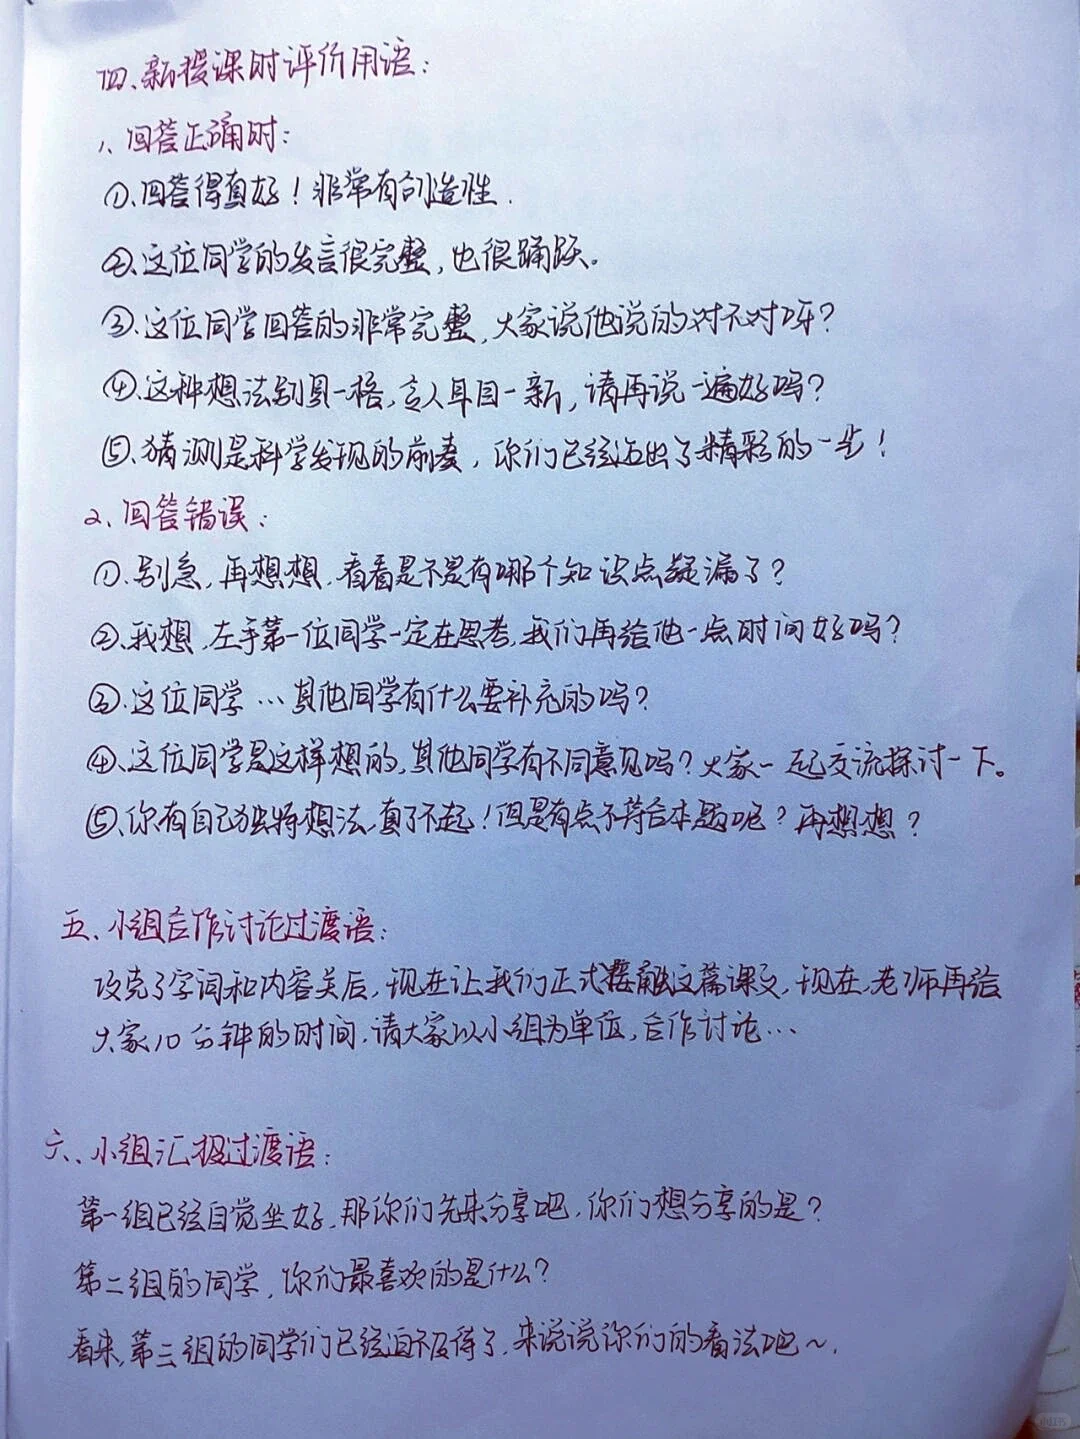 四、新授课时评价用语：
1、回答正确时：
①、回答得真好！非常有创造性.
②、这位同学的发言很完整，也很踊跃。
③、这位同学回答的非常完整，大家说他说的对不对呀？
④、这种想法别具一格，令人耳目一新，请再说一遍好吗？
⑤、猜测是科学发现的前奏，你们已经迈出了精彩的一步！
2、回答错误：
①、别急，再想想，看看是不是有哪个知识点疑漏了？
②、我想，左手第一位同学一定在思考，我们再给他一点时间好吗？
③、这位同学…其他同学有什么要补充的吗？
④、这位同学是这样想的，其他同学有不同意见吗？大家一起交流探讨一下。
⑤、你有自己独特想法，真了不起！但是有点不符合本题呢？再想想？
五、小组合作讨论过渡语：
攻克了字词和内容关后，现在让我们正式接触这篇课文，现在，老师再给
大家10分钟的时间，请大家以小组为单位，合作讨论…
六、小组汇报过渡语：
第一组已经自觉坐好，那你们先来分享吧，你们想分享的是？
第二组的同学，你们最喜欢的是什么？
看来，第三组的同学们已经迫不及待了，来说说你们的看法吧～.
小红书